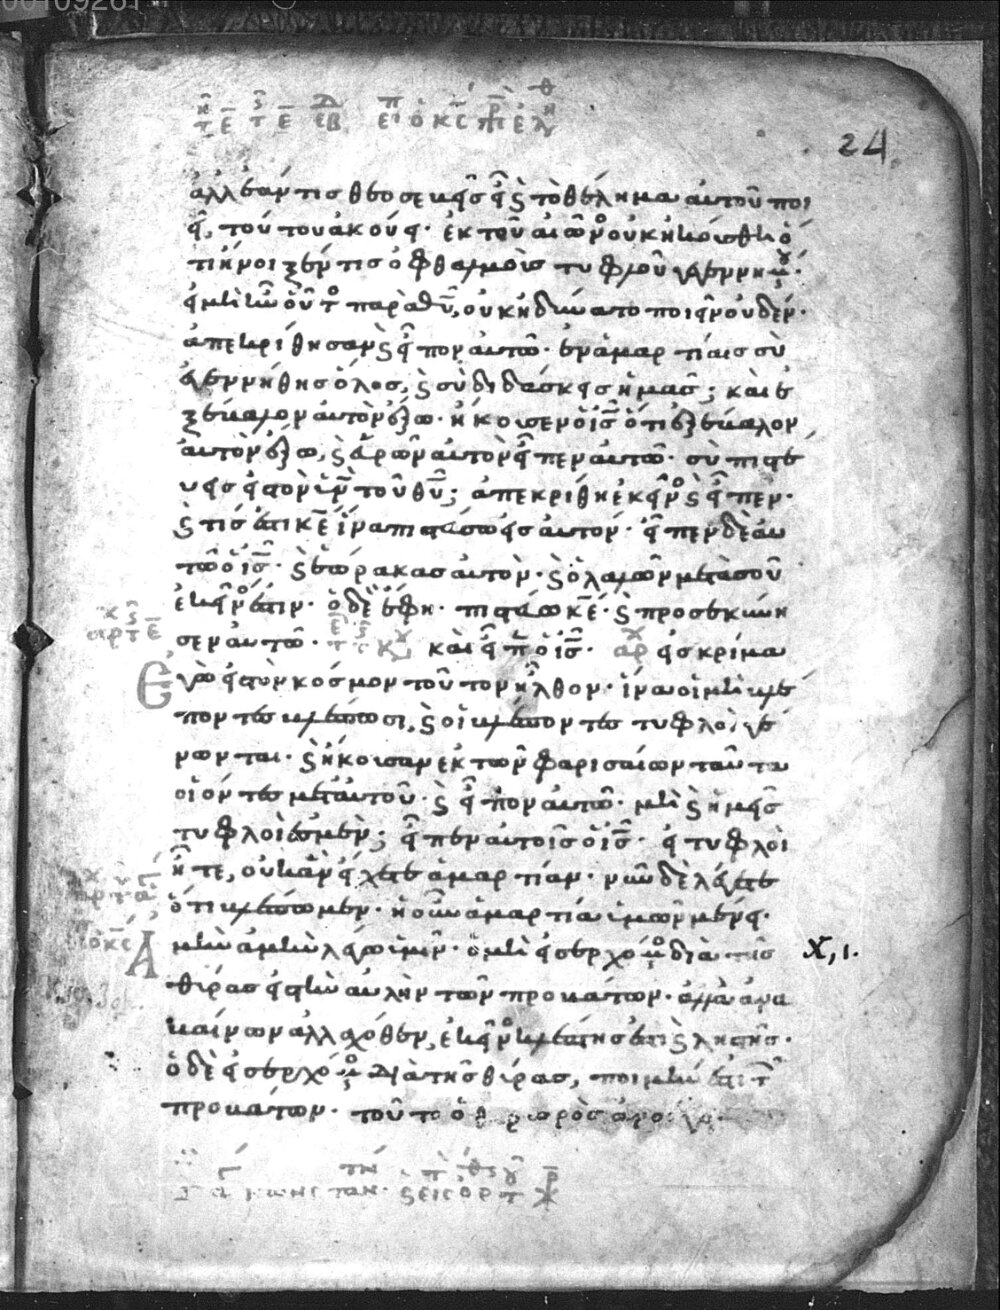 24
ἀλλ ἐάν τις θεοσεβης ἦ ϛ τὸ θέλημα αὐτοῦ ποι
ῆ, τούτου ἀκούει· ἐκ τοῦ αἰῶνο οὐκ ἠκούσθη ὁ
τι ἤνοιξέν τις ὀφθαλμοὺς τυφλοῦ γεγεννη
εἰ μὴ ἦν οὗτο παρὰ θυ, οὐκ ἠδύνατο ποιεῖν οὐδέν·
ἀπεκρίθησαν ϛ εἶπον αὐτῶ· ἐν ἁμαρτίαις σὺ
ἐγεννήθης ὅλος, ϛ σὺ διδάσκεις ἡμᾶς; καὶ ἐ
ξέβαλον αὐτὸν ἔξω· ἤκουσεν ὁ ις ὅτι ἐξέβαλον
αὐτὸν ἔξω, ϛ εὑρὼν αὐτὸν εἶπεν αὐτῶ· σὺ πιστέ
υεις εἰς τὸν υν τοῦ θυ; ἀπεκρίθη ἐκεῖνο ϛ εἶπεν·
ϛ τίς ἐστι κε ἵνα πιστεύσω εἰς αὐτόν· εἶπεν δὲ αὐ
τῶ ὁ ις· ϛ ἑώρακας αὐτὸν· ϛ ὁ λαλῶν μετὰ σοῦ
ἐκεῖνό ἐστιν· ὁ δὲ ἔφη· πιστεύω κε· ϛ προσεκύνη
σεν αὐτῶ· καὶ εἶπεν ὁ ις· εἰς κρίμα
Εγὼ εἰς τὸν κόσμον τοῦτον ἦλθον· ἵνα οἱ μὴ βλέ
ποντες βλέπωσι, ϛ οἱ βλέποντες τυφλοὶ γέ
νωνται· ϛ ἤκουσαν ἐκ τῶν φαρισαίων ταῦτα
οἱ ὄντες μετ αὐτοῦ· ϛ εἶπον αὐτῶ· μὴ ϛ ἡμεῖς
τυφλοί ἐσμεν; εἶπεν αὐτοῖς ὁ ις· εἰ τυφλοὶ
ἦτε, οὐκ ἂν εἴχετε ἁμαρτίαν· νῦν δὲ λέγετε
ὅτι βλέπομεν· ἡ οὖν ἁμαρτία ὑμῶν μένει·
Αμὴν ἀμὴν λέγω ὑμῖν· ὁ μὴ εἰσερχόμενο διὰ τῆς X, 1.
θύρας εἰς τὴν αὐλὴν τῶν προβάτων· ἀλλὰ ἀνα
βαίνων ἀλλαχόθεν, ἐκεῖνο κλέπτης ἐστὶ ϛ ληστής·
ὁ δὲ εἰσερχόμενο διὰ τῆς θύρας, ποιμήν ἐστι τ
προβάτων· τοῦτο ὁ θυρωρὸς ἀνοίγει·